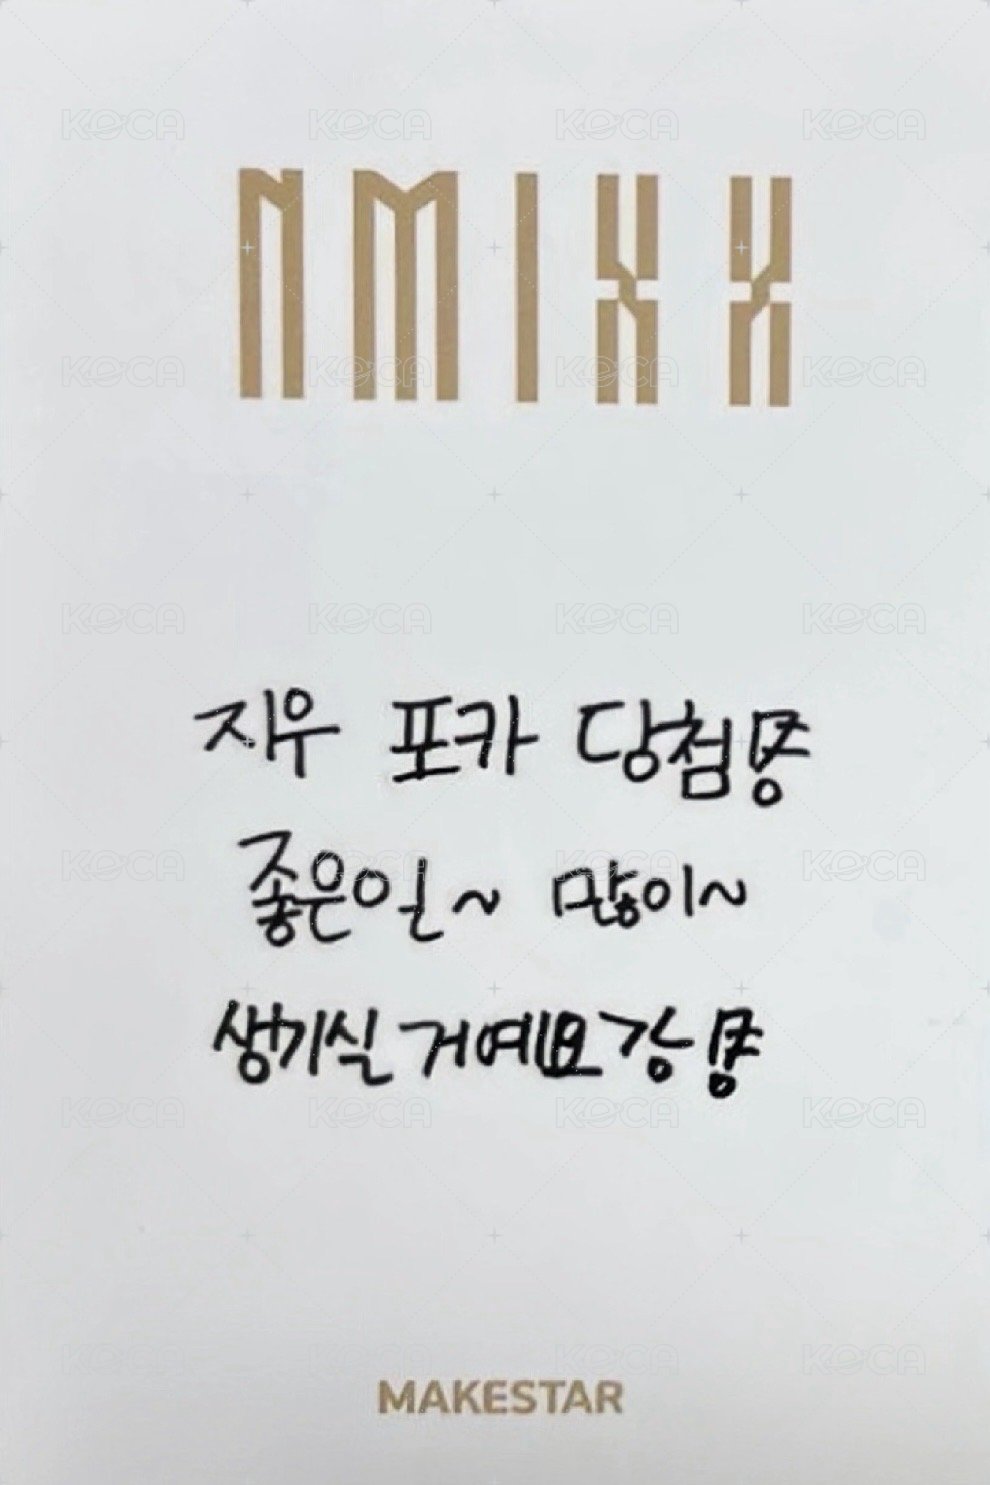 NMIXX
지우 포카 당첨용
좋은일~ 많이~
생기실 거예요 강용
MAKESTAR
KOCA